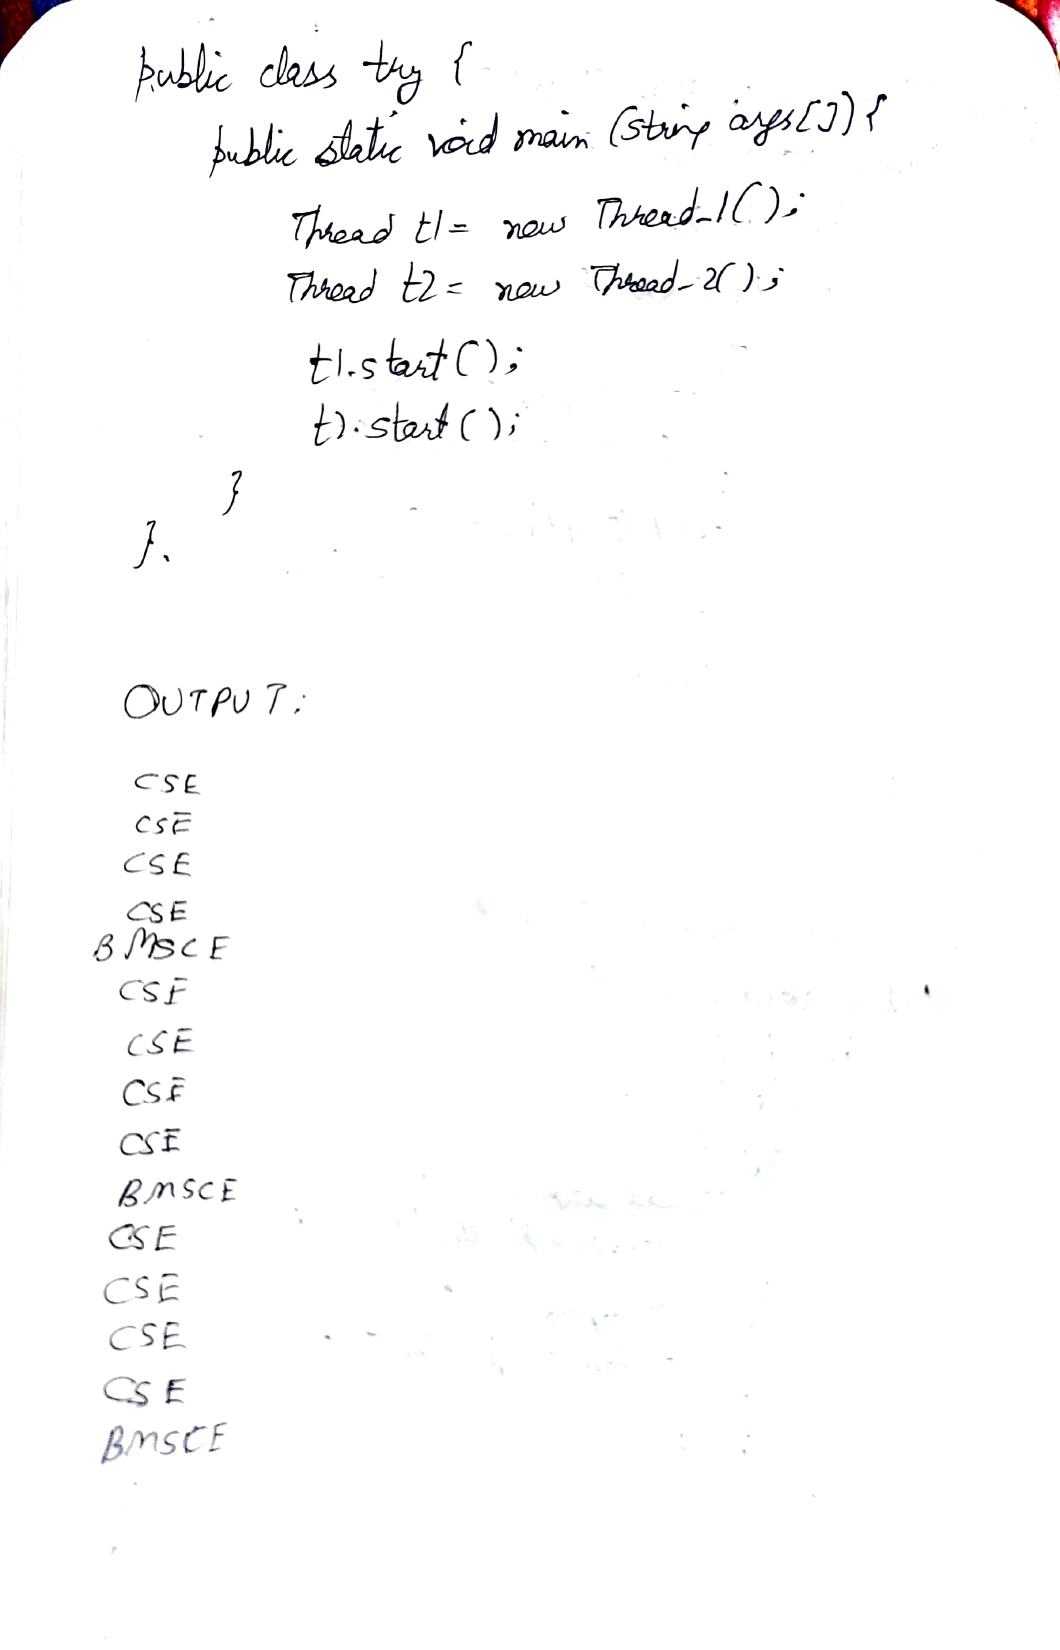 public class try {
public static void main (string args[]) {
Thread t1 = new Thread_1();
Thread t2 = new Thread_2();
t1.start();
t2.start();
}
}.
OUTPUT:
CSE
CSE
CSE
CSE
BMSCE
CSE
CSE
CSE
CSE
BMSCE
CSE
CSE
CSE
CSE
BMSCE